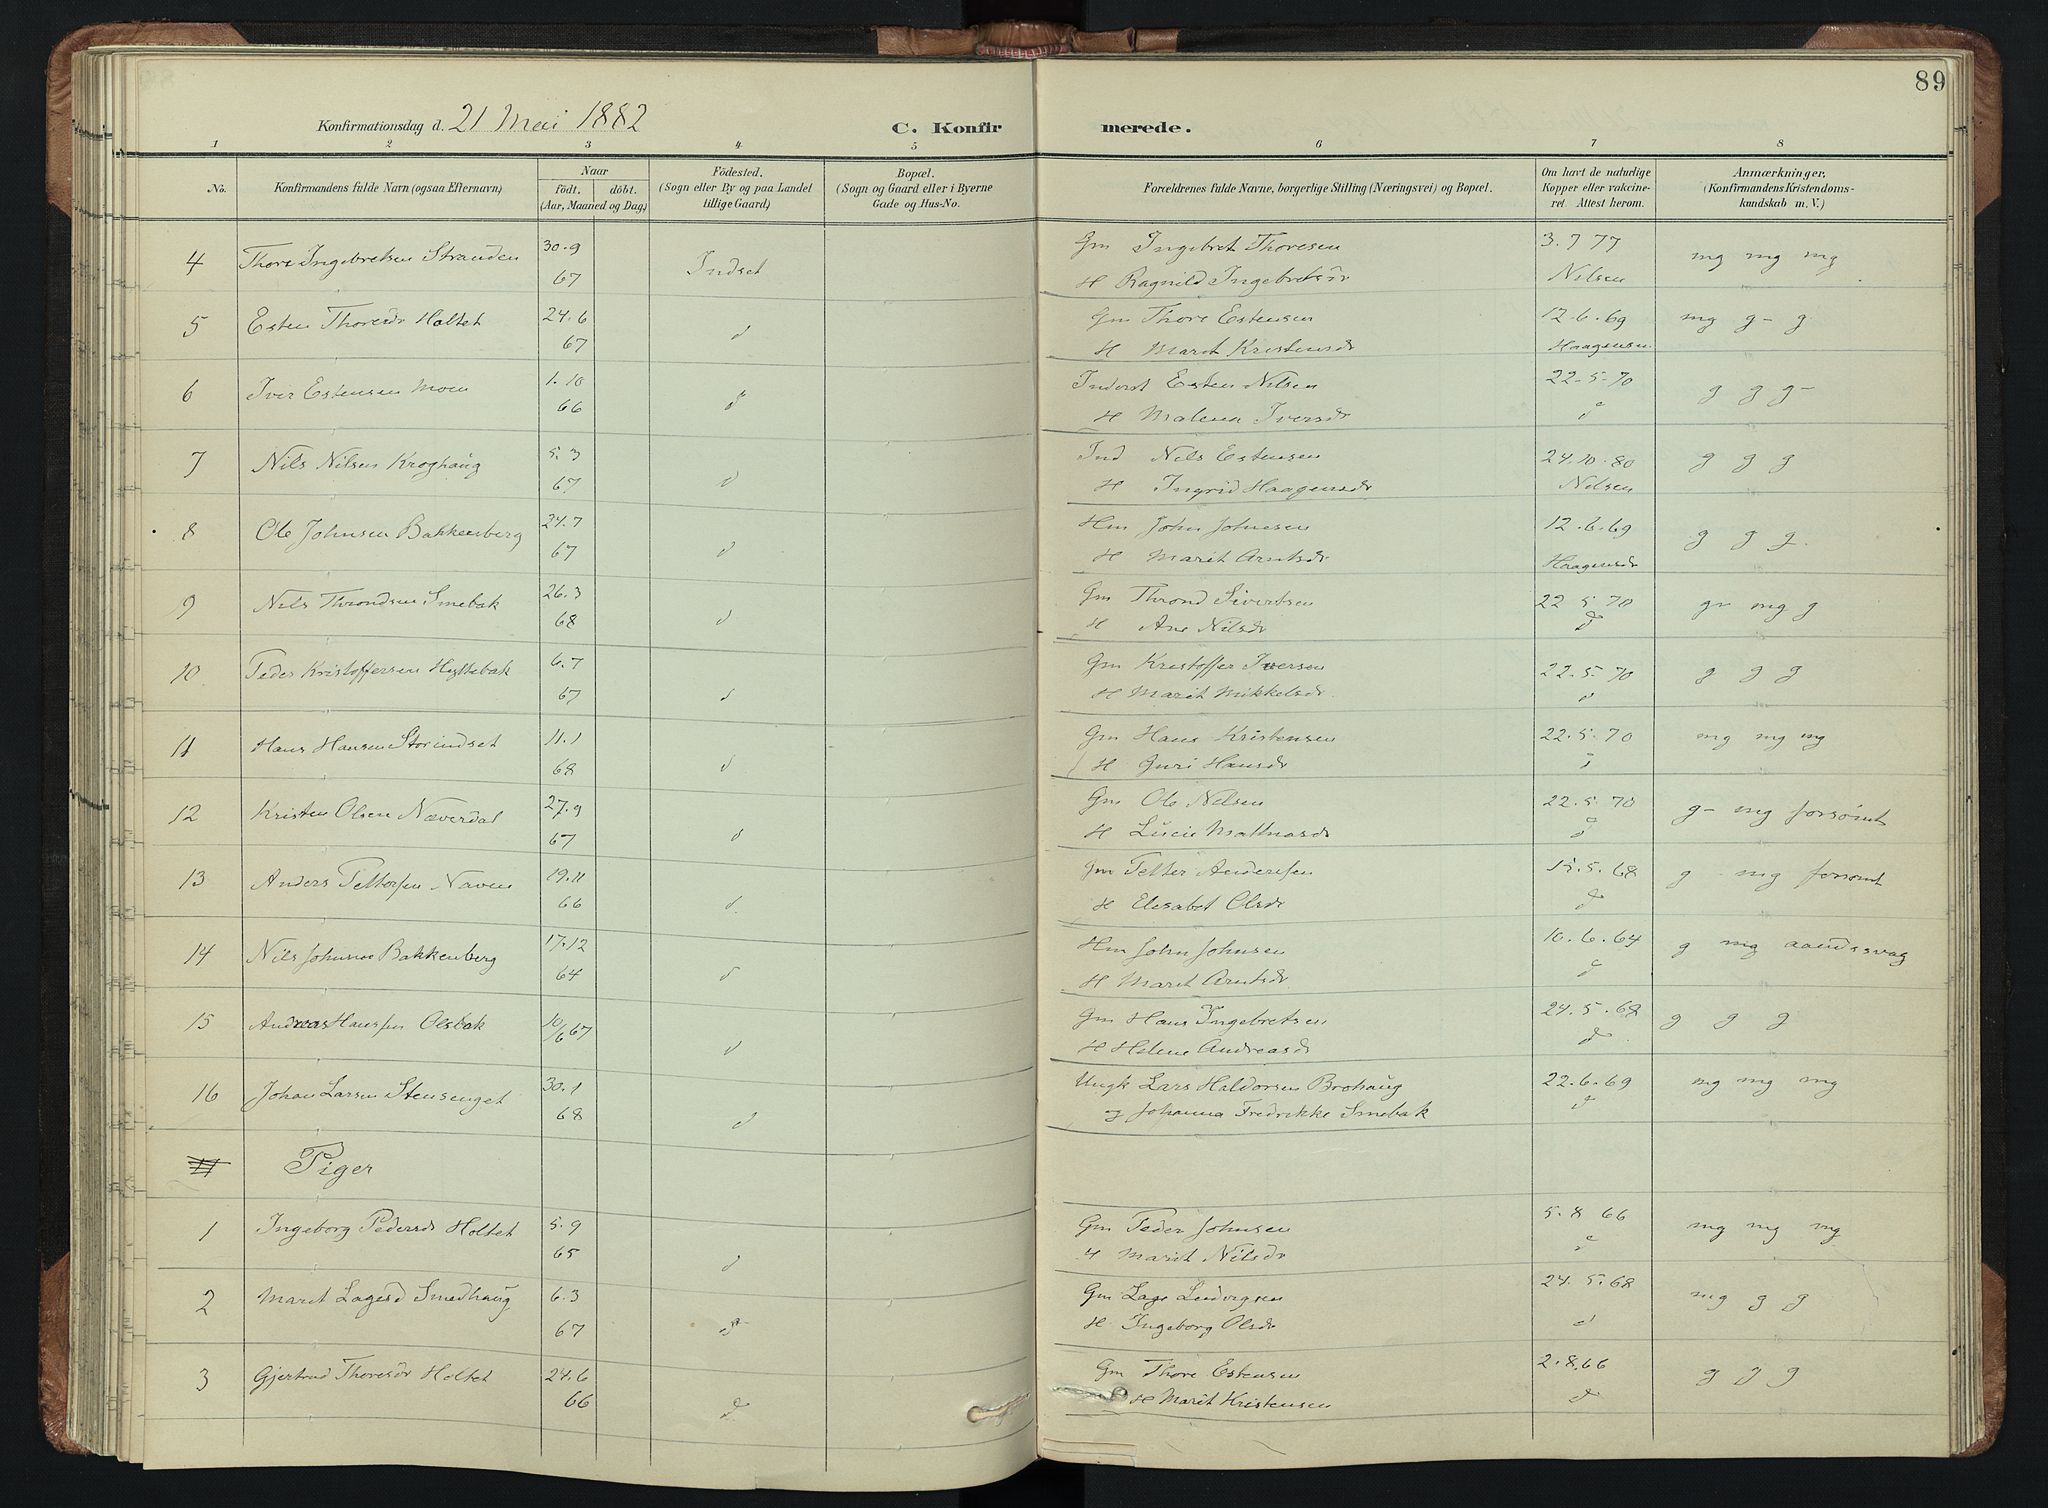 89
Konfirmationsdag d. 21 Mai 1882
C. Konfirmerede.
1 2 3 4 5 6 7 8
No.
Konfirmandens fulde Navn (ogsaa Efternavn)
Naar
födt. döbt.
(Aar, Maaned og Dag)
Födested.
(Sogn eller By og paa Landet
tillige Gaard)
Bopæl.
(Sogn og Gaard eller i Byerne
Gade og Hus-No.
Forældrenes fulde Navne, borgerlige Stilling (Næringsvei) og Bopæl.
Om havt de naturlige
Kopper eller vakcine-
ret. Attest herom.
Anmærkninger,
(Konfirmandens Kristendoms-
kundskab m. V.)
4 Thore Ingebretsen Stranden 30.9 67 Indset
Gm Ingebret Thoresen 3.7 77 mg mg mg
H Ragnild Ingebretsdr Nilsen
5 Esten Thoresdr Holtet 24.6 67 d
Gm Thore Estensen 12.6.69 mg g- g
H Marit Kristensdr Haagensen
6 Iver Estensen Moen 1.10 66 d
Inderst Esten Nilsen 22.5.70 g g g-
H Malena Iversdr d
7 Nils Nilsen Kroghaug 5.3 67 d
Ind Nils Estensen 24.10.80 g g g
H Ingrid Haagensdr Nilsen
8 Ole Johnsen Bakkenberg 24.7 67 d
Hm John Johnesen 12.6.69 g g g.
H Marit Arntsdr Haagensdr
9 Nils Throndsen Smebak 26.3 68 d
Gm Thrond Sivertsen 22 5 70 g- mg g
H Ane Nilsdr d
10 Peder Kristoffersen Hyttebak 6.7 67 d
Gm Kristoffer Iversen 22.5.70 g g g
H Marit Mikkelsdr. d
11 Hans Hansen Storindset 11.1 68 d
Gm Hans Kristensen 22.5.70 mg mg mg
H Guri Hansdr d
12 Kristen Olsen Næverdal 27.9 67 d
Gm Ole Nilsen 22.5.70 g- mg forsømt
H Lucie Mattiasdr d
13 Anders Pettersen Naven 19.11 66 d.
Gm Petter Andersen 15.5.68 g - mg forsømt
H Elisabet Olsdr d
14 Nils Johnsen Bakkenberg 17.12 64 d
Hm John Johnsen 10.6.64 g mg aandssvag
H Marit Arntsdr d
15 Andreas Hanssen Olsbak 10/6 67 d
Gm Hans Ingebretsen 24.5.68 g g g
H Helene Andreasdr d
16 Johan Larsen Stensenget 30.1 68 d
Ungk Lars Haldorsen Brohaug 22.6.69 mg mg mg
og Johanna Fredrikke Smebak d
Piger
1 Ingeborg Pedersdr Holtet 5.9 65 d
Gm Peder Johnsen 5.8 66 mg mg mg
H Marit Nilsdr d
2 Marit Lagesd Smedhaug 6.3 67 d
Gm Lage Ludvigsen 24.5.68 mg g g
H Ingeborg Olsdr d
3 Gjertrud Thoresdr Holtet 24.6 66 d
Gm Thore Estensen 2.8.66 g g g
H Marit Kristensen d